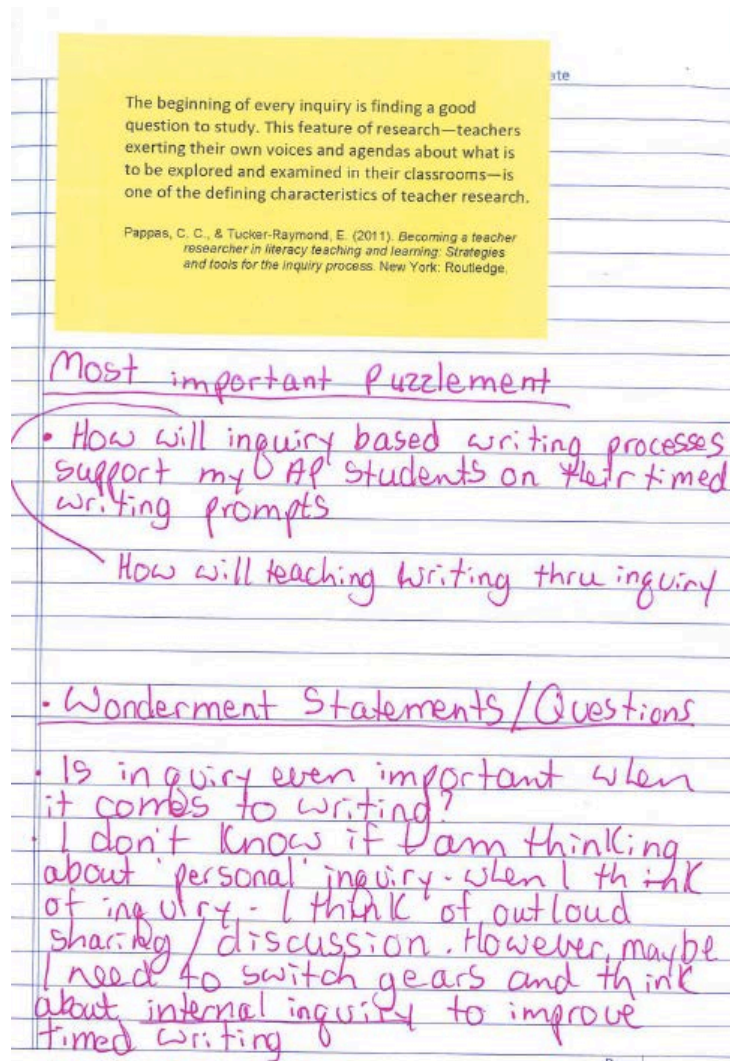 ate
The beginning of every inquiry is finding a good
question to study. This feature of research—teachers
exerting their own voices and agendas about what is
to be explored and examined in their classrooms—is
one of the defining characteristics of teacher research.
Pappas, C. C., & Tucker-Raymond, E. (2011). Becoming a teacher
researcher in literacy teaching and learning: Strategies
and tools for the inquiry process. New York: Routledge.
Most important Puzzlement
• How will inquiry based writing processes
support my AP students on their timed
writing prompts
How will teaching writing thru inquiry
• Wonderment Statements/Questions
• Is inquiry even important when
it comes to writing?
• I don't know if I am thinking
about 'personal' inquiry - when I think
of inquiry - I think of outloud
sharing/discussion. However, maybe
I need to switch gears and think
about internal inquiry to improve
timed writing